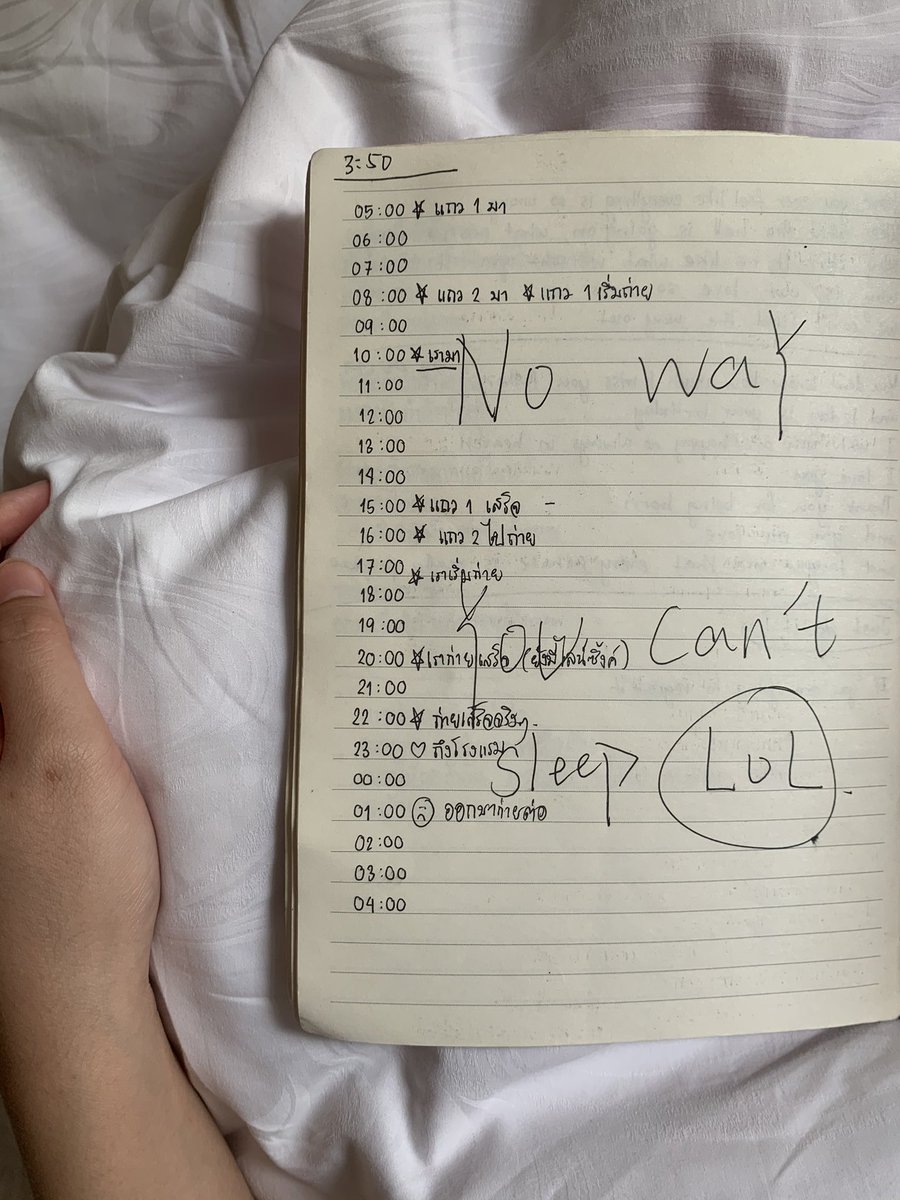 3:50
05:00 ☆ แถว 1 มา
06:00
07:00
08:00 ☆ แถว 2 มา ☆ แถว 1 เริ่มถ่าย
09:00
10:00 ☆ เรามา
No way
11:00
12:00
13:00
14:00
15:00 ☆ แถว 1 เสร็จ -
16:00 ☆ แถว 2 ไปถ่าย
17:00 ☆ เราเริ่มถ่าย
18:00
19:00
I Can't
20:00 ☆ เราถ่ายเสร็จ (ยังมีไลน์ซิ้งค์)
21:00
22:00 ☆ ถ่ายเสร็จจริงๆ -
23:00 ♡ ถึงโรงแรม
Sleep LOL
00:00
01:00 ☹ ออกมาถ่ายต่อ
02:00
03:00
04:00